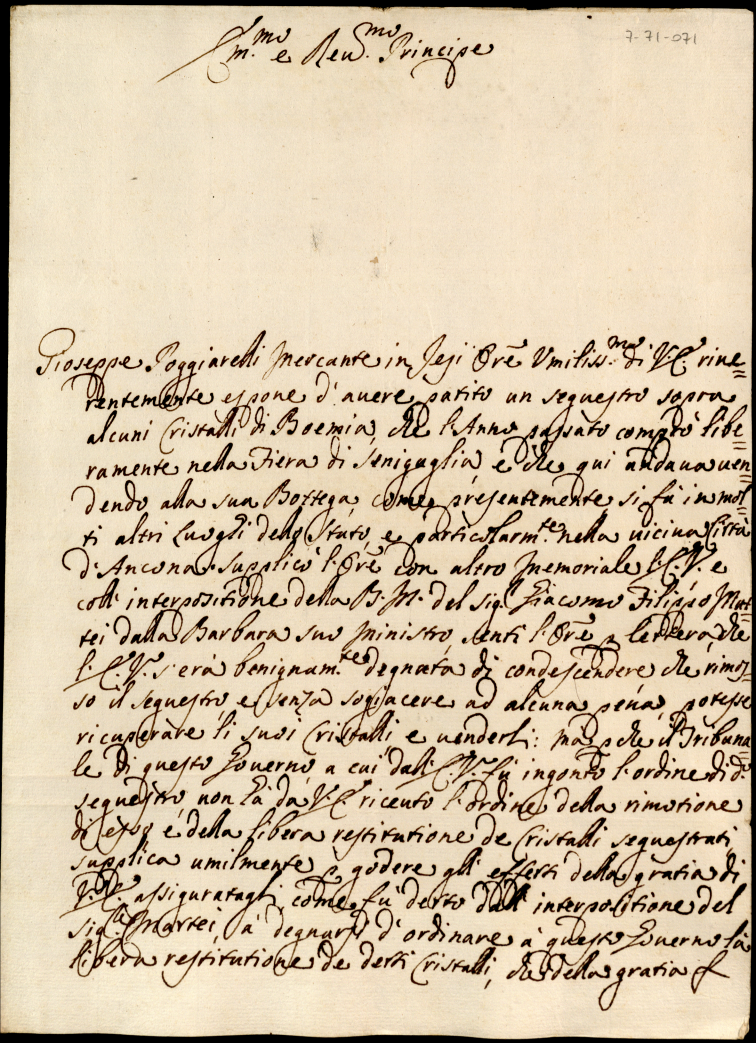 7-71-071
Em.mo e Reu.mo Principe
Gioseppe Poggiarelli Mercante in Jesi Orē Vmiliss.mo di V.E. riue=
rentemente espone d'auere patito un sequestro sopra
alcuni Cristalli di Boemia, che l'Anno passato comprò libe=
ramente nella Fiera di Senigaglia, e che qui andaua uen=
dendo alla sua Bottega, come presentemente si fà in mol=
ti altri Luoghi dello Stato, e particolarm.te nella uicina Città
d'Ancona. Supplicò l'Orē con altro Memoriale l'E.V. e
coll'interpositione della B.M. del sig.r Giacomo Filippo Mat=
tei dalla Barbara suo Ministro, sentì l'Orē p lettera, che
l'E.V. s'era benignam.te degnata di condescendere che rimos=
so il sequestro, e senza sogiacere ad alcuna pena, potesse
ricuperare li suoi Cristalli e uenderli: mà p che il Tribuna=
le di questo Gouerno, a cui dall'E.V. fù ingonto l'ordine di d.o
sequestro, non hà da V.E. riceuto l'ordine della rimotione
di esso, e della libera restitutione de Cristalli sequestrati,
supplica umilmente p godere gli effetti della gratia di
V.E. assiguratagli, come fu detto dall'interpositione del
sig.r Mattei, à degnarsi d'ordinare à questo Gouerno la
libera restitutione de detti Cristalli, che della gratia